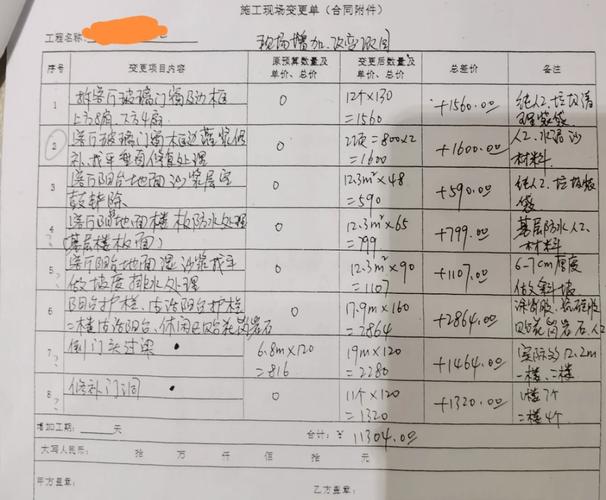 施工现场变更单（合同附件）
工程名称:
现场增加.改变项目
序号 变更项目内容 原预算数量及单价、总价 变更后数量及单价、总价 总差价 备注
1 拆客厅玻璃门窗及边框 上方8扇.下方4扇 0 12个×130 =1560 +1560.00 纯人工.垃圾清理装袋
2 客厅玻璃门窗框边 修补.找平 修复处理 0 =800×2 =1600 +1600.00 人工.水泥沙 材料
3 客厅阳台地面沙浆层空鼓铲除 0 12.3m²×48 =590 +590.00 纯人工.垃圾装袋
4 客厅阳地面楼板防水处理(基层楼板面) 0 12.3m²×65 =799 +799.00 基层防水人工.材料
5 客厅阳台地面混沙浆找平 做坡度排水处理 0 12.3m²×90 =1107 +1107.00 6-7cm厚度 做斜坡
6 阳台护栏、生活阳台护栏 二楼生活阳台、休闲区贴花岗岩石 0 17.9m×160 =2864 +2864.00 贴花岗岩石.人工
7 倒门头过梁 6.8m×120 =816 19m×120 =2280 +1464.00 实际为12.2m 一楼、二楼
8 修补门洞 0 11个×120 =1320 +1320.00 1楼7个 二楼4个
增加工期: 天 合计: ¥ 11304.00
大写人民币: 拾 万 仟 佰 拾 元
甲方盖章: 乙方盖章: